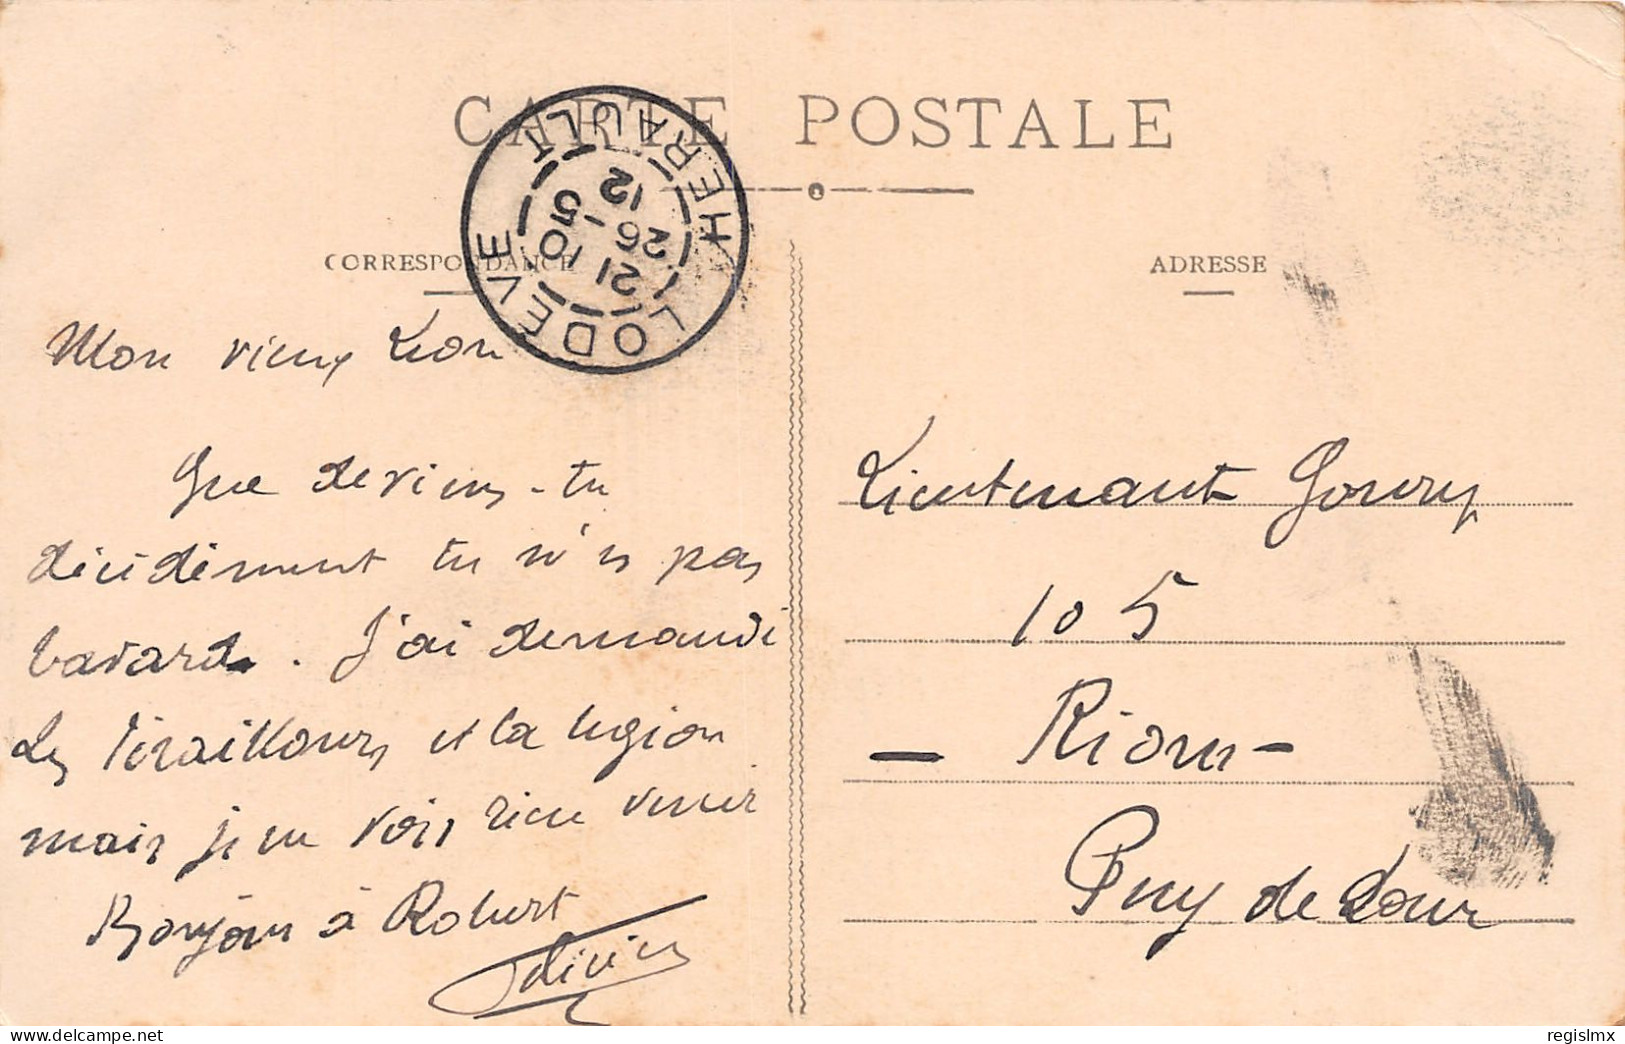 CARTE POSTALE
LODEVE
HERAULT
21 10
26 - 5
12
CORRESPONDANCE
ADRESSE
Mon vieux Léon
Que deviens-tu
décidément tu n'es pas
bavard. J'ai demandé
les Tirailleurs et la légion
mais je ne vois rien venir
Bonjour à Robert
Olivier
Lieutenant Goury
105
- Riom -
Puy de Dour
delcampe.net
regislmx